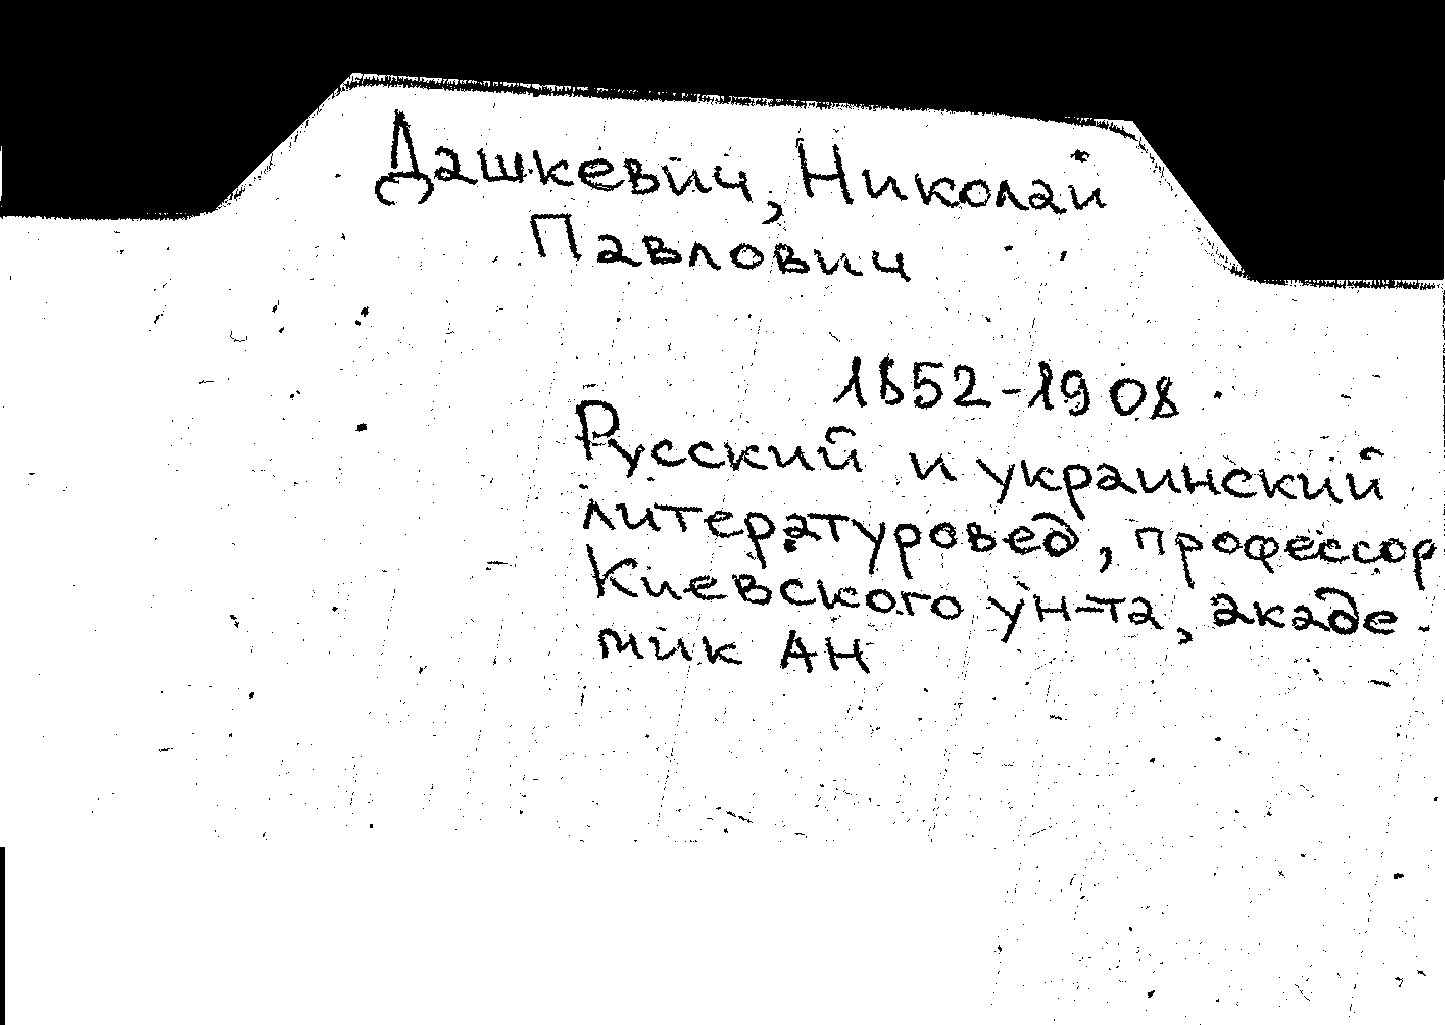 Дашкевич, Николай
Павлович
1852-1908
Русский и украинский
литературовед, профессор
Киевского ун-та, акаде-
мик АН